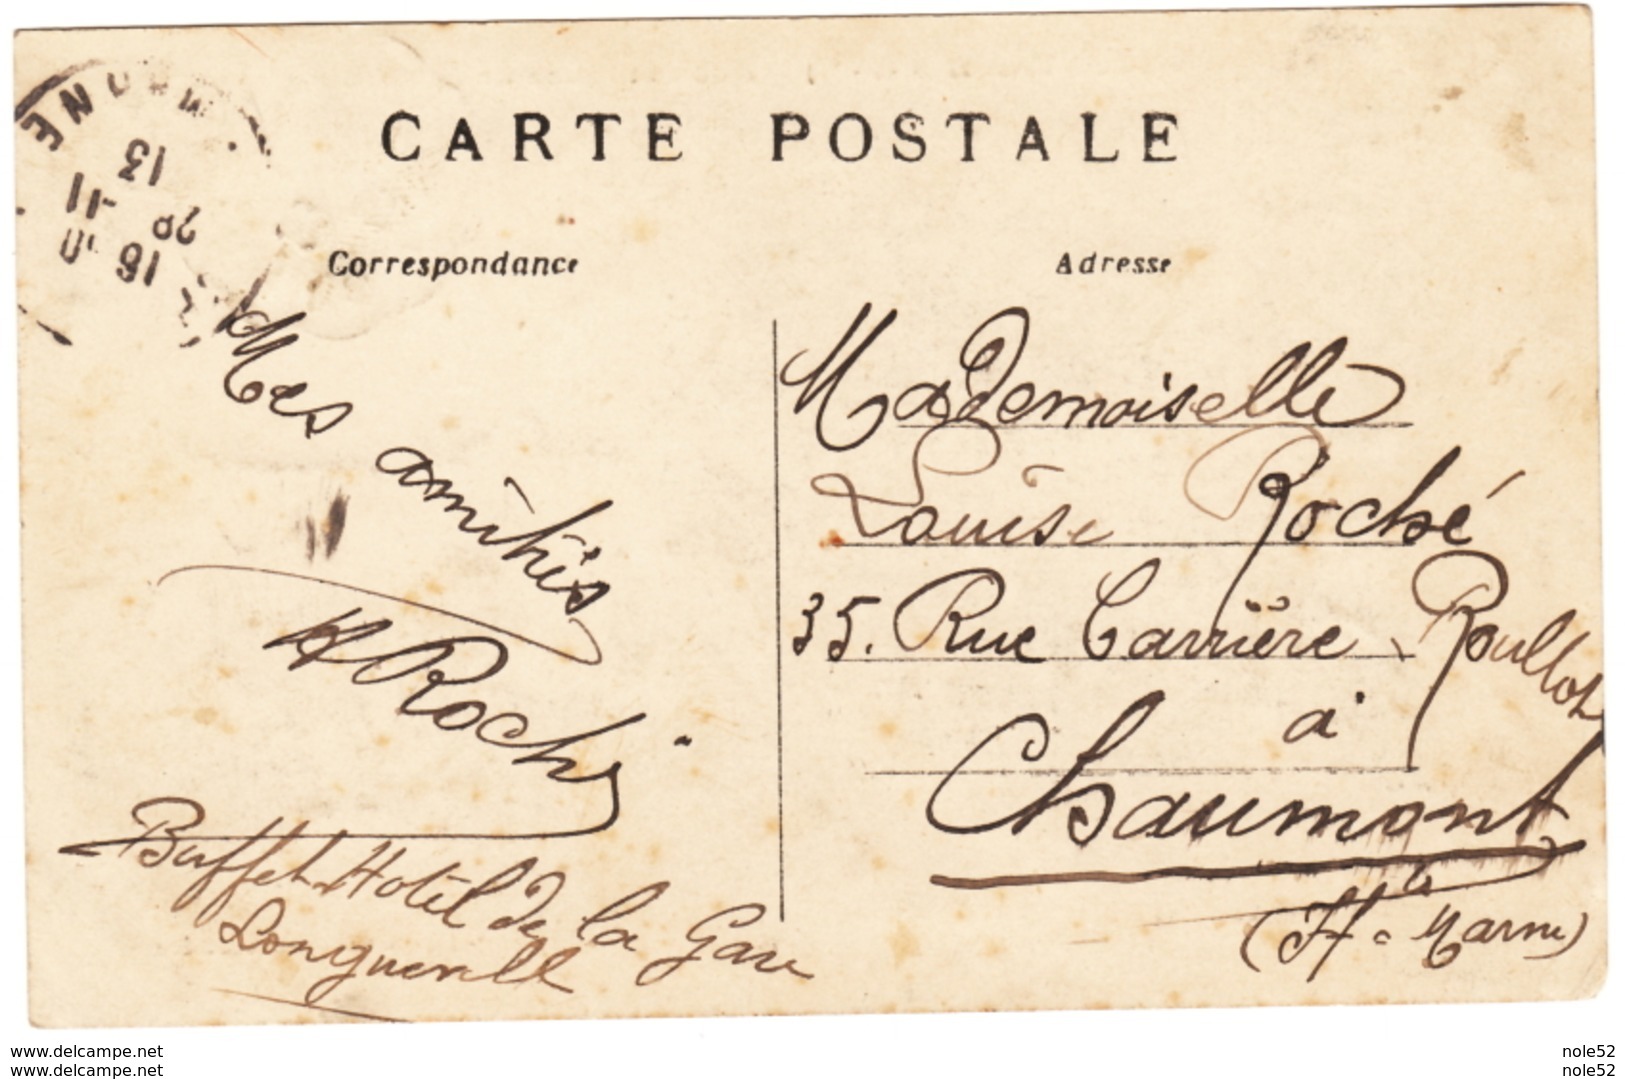 CARTE POSTALE
13
28 11
16
Correspondance
Adresse
Mes amitiés
H Roché
Buffet Hotel de la Gare
Longueville
Mademoiselle
Louise Roché
35. Rue Carrière Roullot
à
Chaumont
(Hte Marne)
www.delcampe.net
www.delcampe.net
nole52
nole52